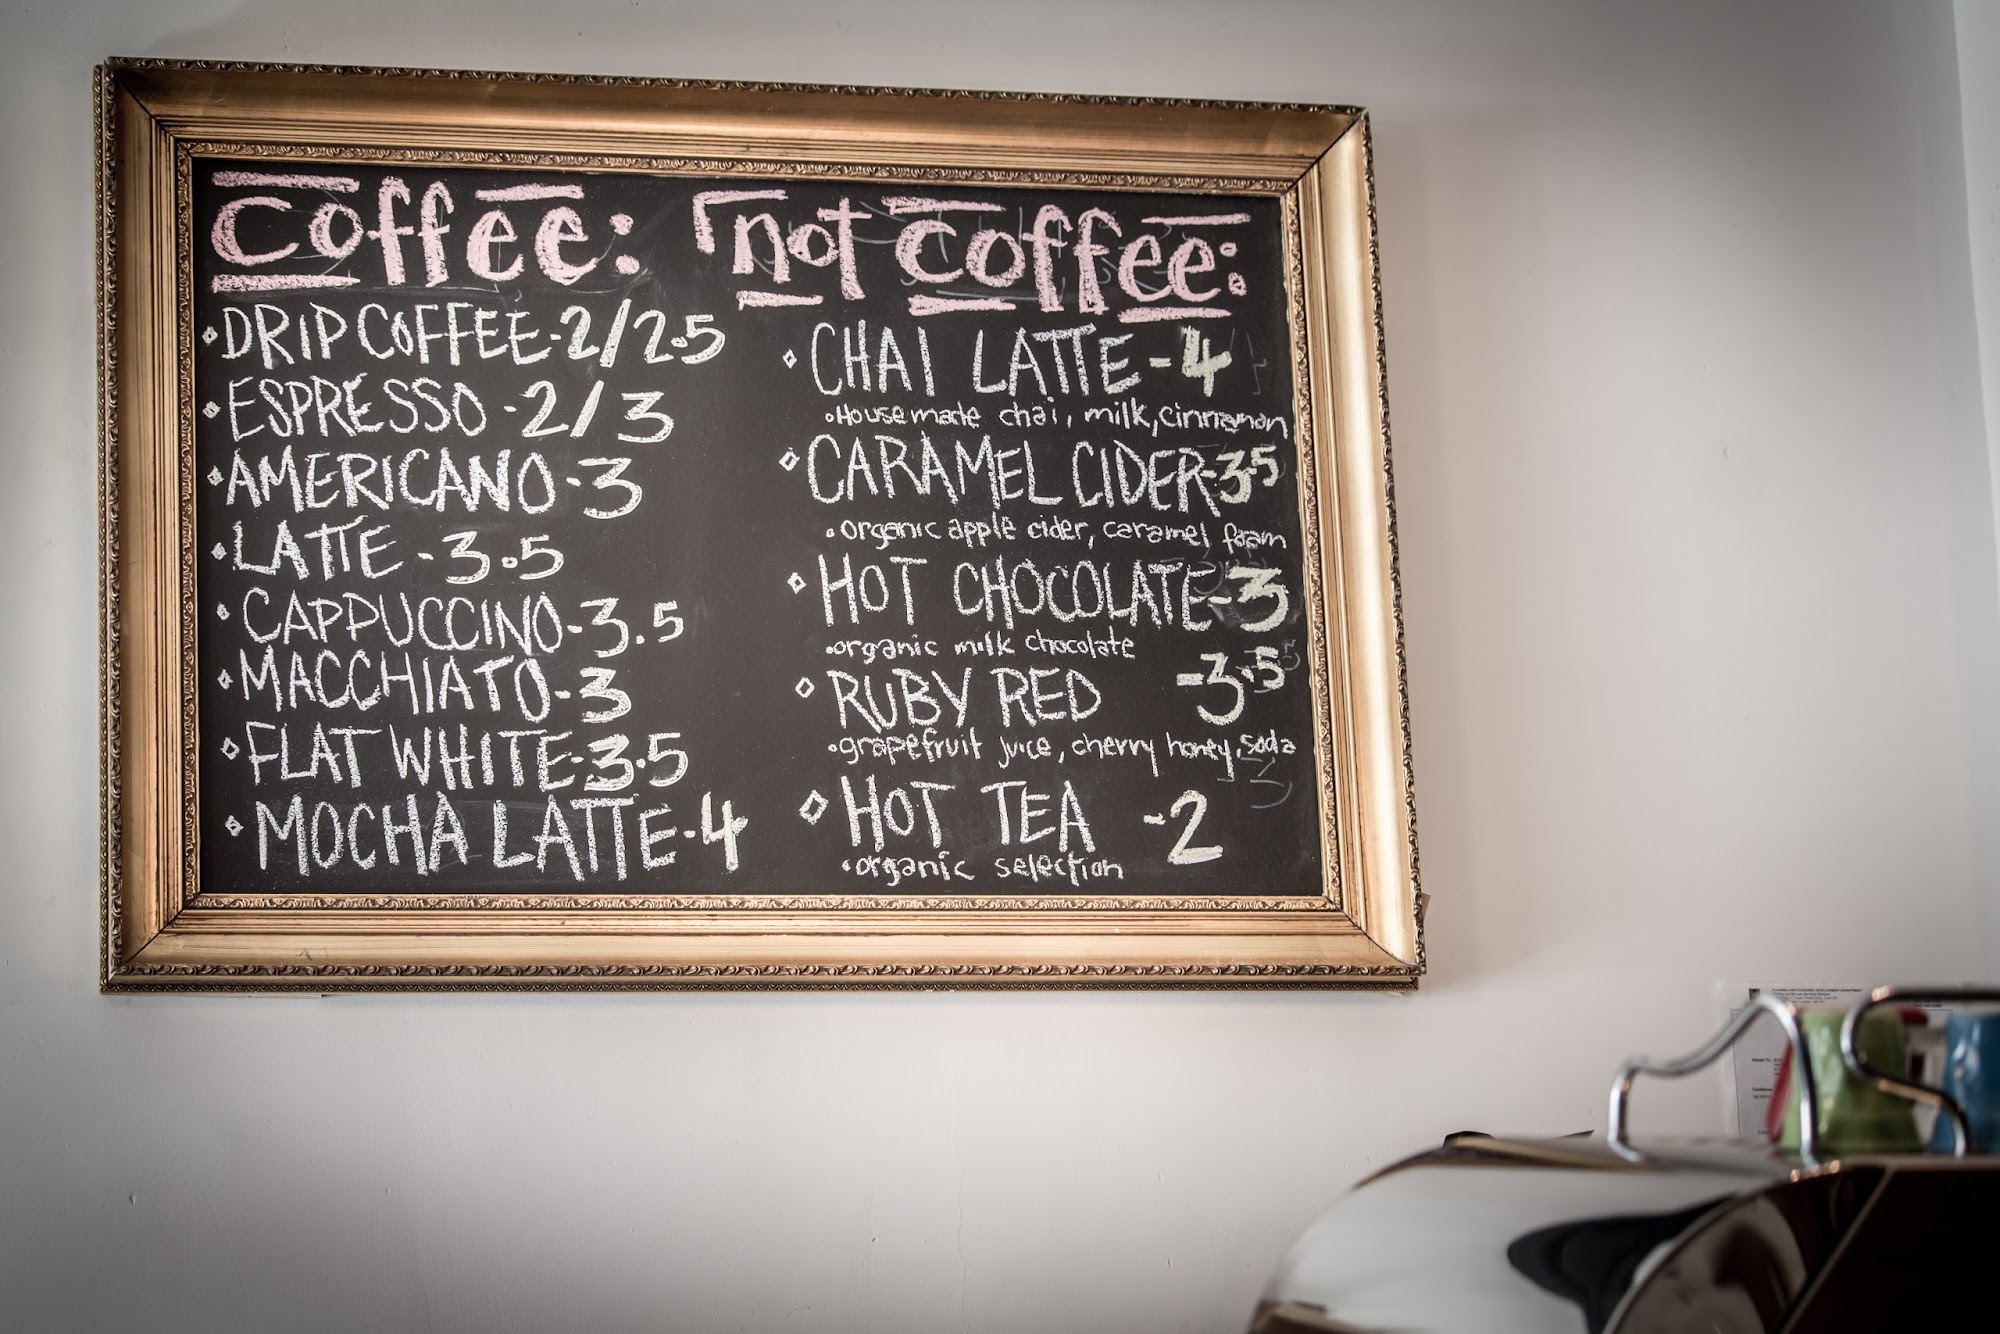 Coffee:
DRIP COFFEE - 2/2.5
ESPRESSO - 2/3
AMERICANO - 3
LATTE - 3.5
CAPPUCCINO - 3.5
MACCHIATO - 3
FLAT WHITE - 3.5
MOCHA LATTE - 4
not coffee:
CHAI LATTE - 4
•House made chai, milk, cinnamon
CARAMEL CIDER - 3.5
•organic apple cider, caramel foam
HOT CHOCOLATE - 3
•organic milk chocolate
RUBY RED - 3.5
•grapefruit juice, cherry honey, soda
HOT TEA - 2
•organic selection